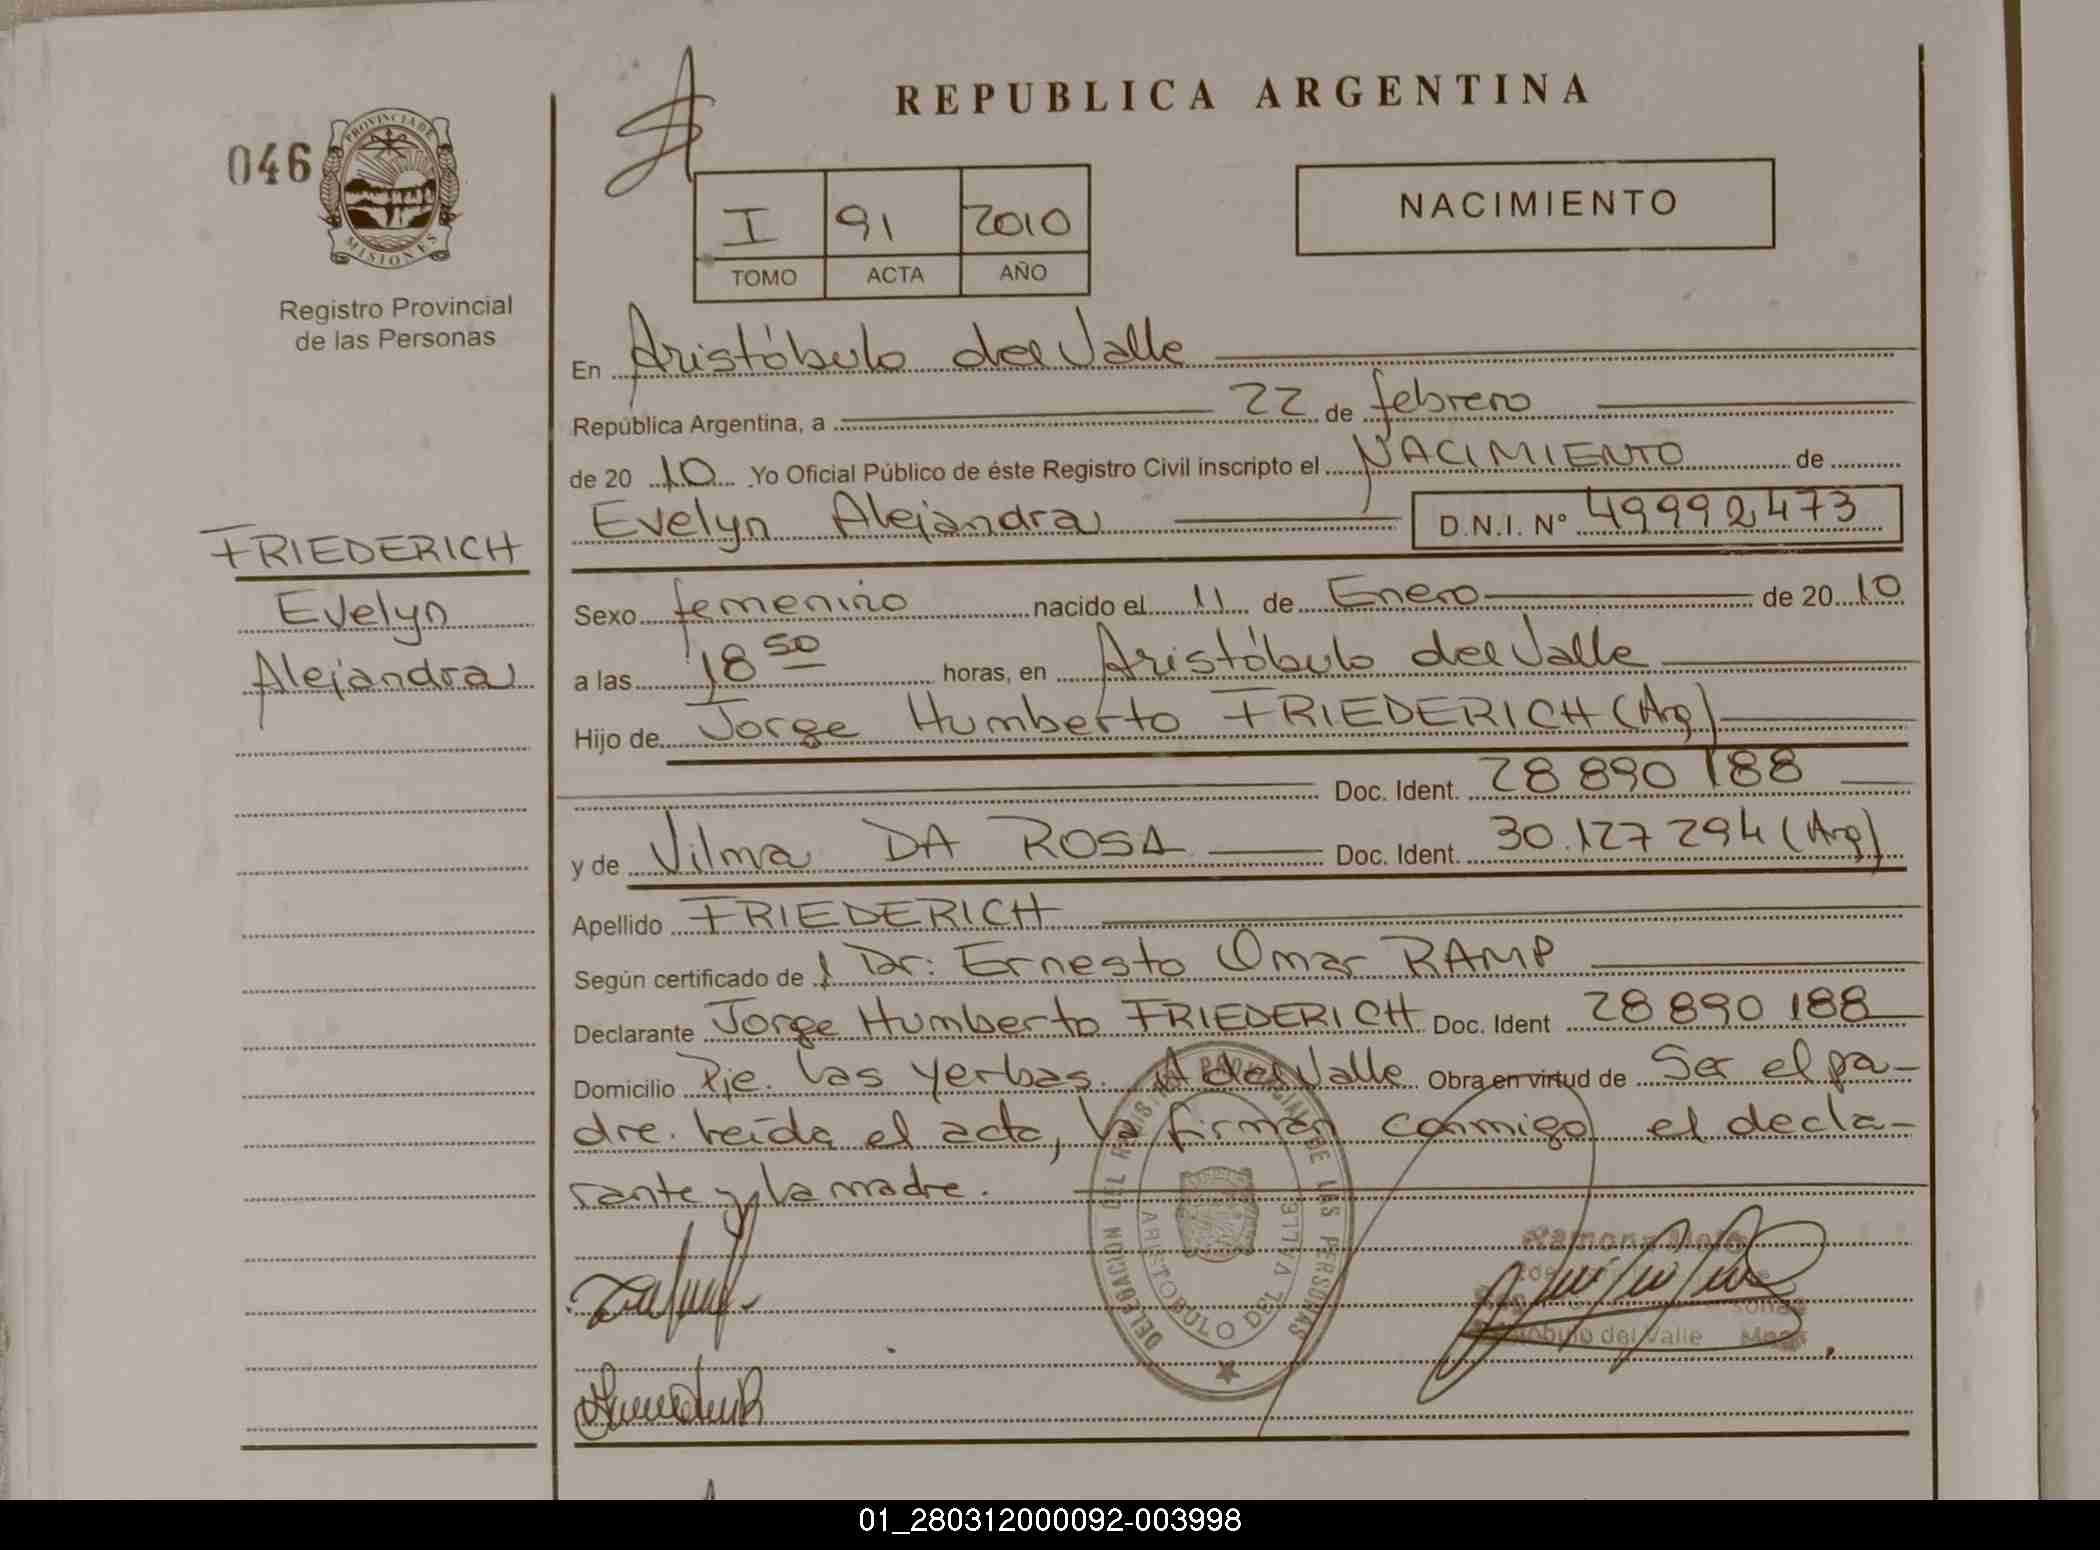 REPUBLICA ARGENTINA
046
PROVINCIA DE
MISIONES
Registro Provincial
de las Personas
I 91 2010
TOMO ACTA AÑO
NACIMIENTO
En Aristóbulo del Valle
República Argentina, a 22 de febrero
de 20 10 Yo Oficial Público de éste Registro Civil inscripto el NACIMIENTO de
Evelyn Alejandra D.N.I. Nº 49992473
FRIEDERICH
Evelyn
Alejandra
Sexo femenino nacido el 11 de Enero de 20 10
a las 18 50 horas, en Aristóbulo del Valle
Hijo de Jorge Humberto FRIEDERICH (Arg)
Doc. Ident. 28 890 188
y de Vilma DA ROSA Doc. Ident. 30.127 294 (Arg)
Apellido FRIEDERICH
Según certificado de Dr: Ernesto Omar RAMP
Declarante Jorge Humberto FRIEDERICH Doc. Ident 28 890 188
Domicilio Pje. Las Yerbas. A del Valle Obra en virtud de Ser el pa-
dre. Leída el acta, la firman conmigo el decla-
rante y la madre.
DELEGACION DEL REGISTRO PROVINCIAL DE LAS PERSONAS
ARISTOBULO DEL VALLE
Ramona
del Valle
01_280312000092-003998